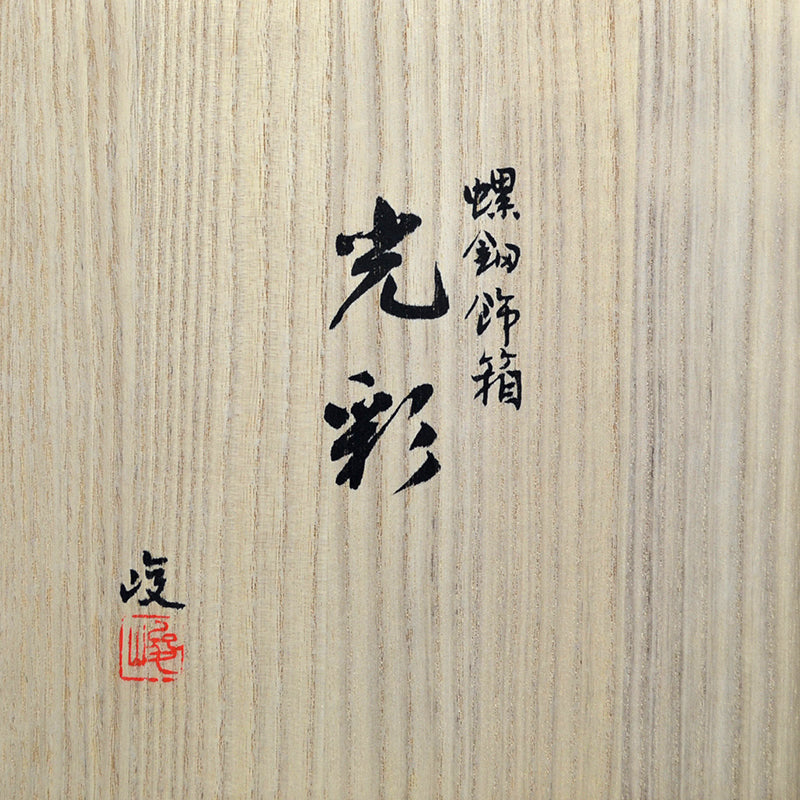 螺鈿飾箱
光彩
峻
峻